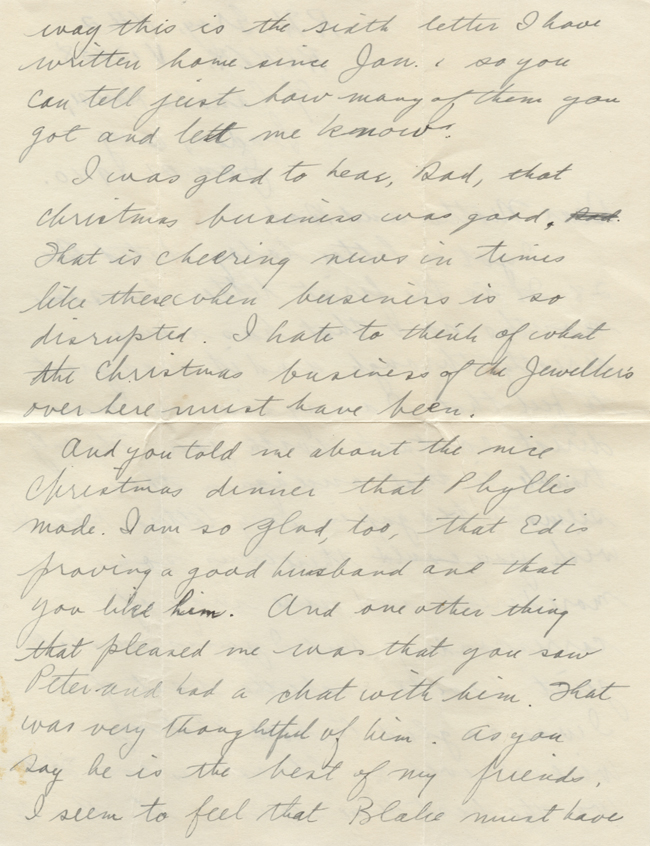 way this is the sixth letter I have
written home since Jan. 1 so you
can tell just how many of them you
got and lett me know.
I was glad to hear, Dad, that
Christmas business was good.
That is cheering news in times
like these when business is so
disrupted. I hate to think of what
the Christmas business of the Jewellers
over here must have been.
And you told me about the nice
Christmas dinner that Phyllis
made. I am so glad, too, that Ed is
proving a good husband and that
you like him. And one other thing
that pleased me was that you saw
Peter and had a chat with him. That
was very thoughtful of him. As you
say he is the best of my friends.
I seem to feel that Blake must have